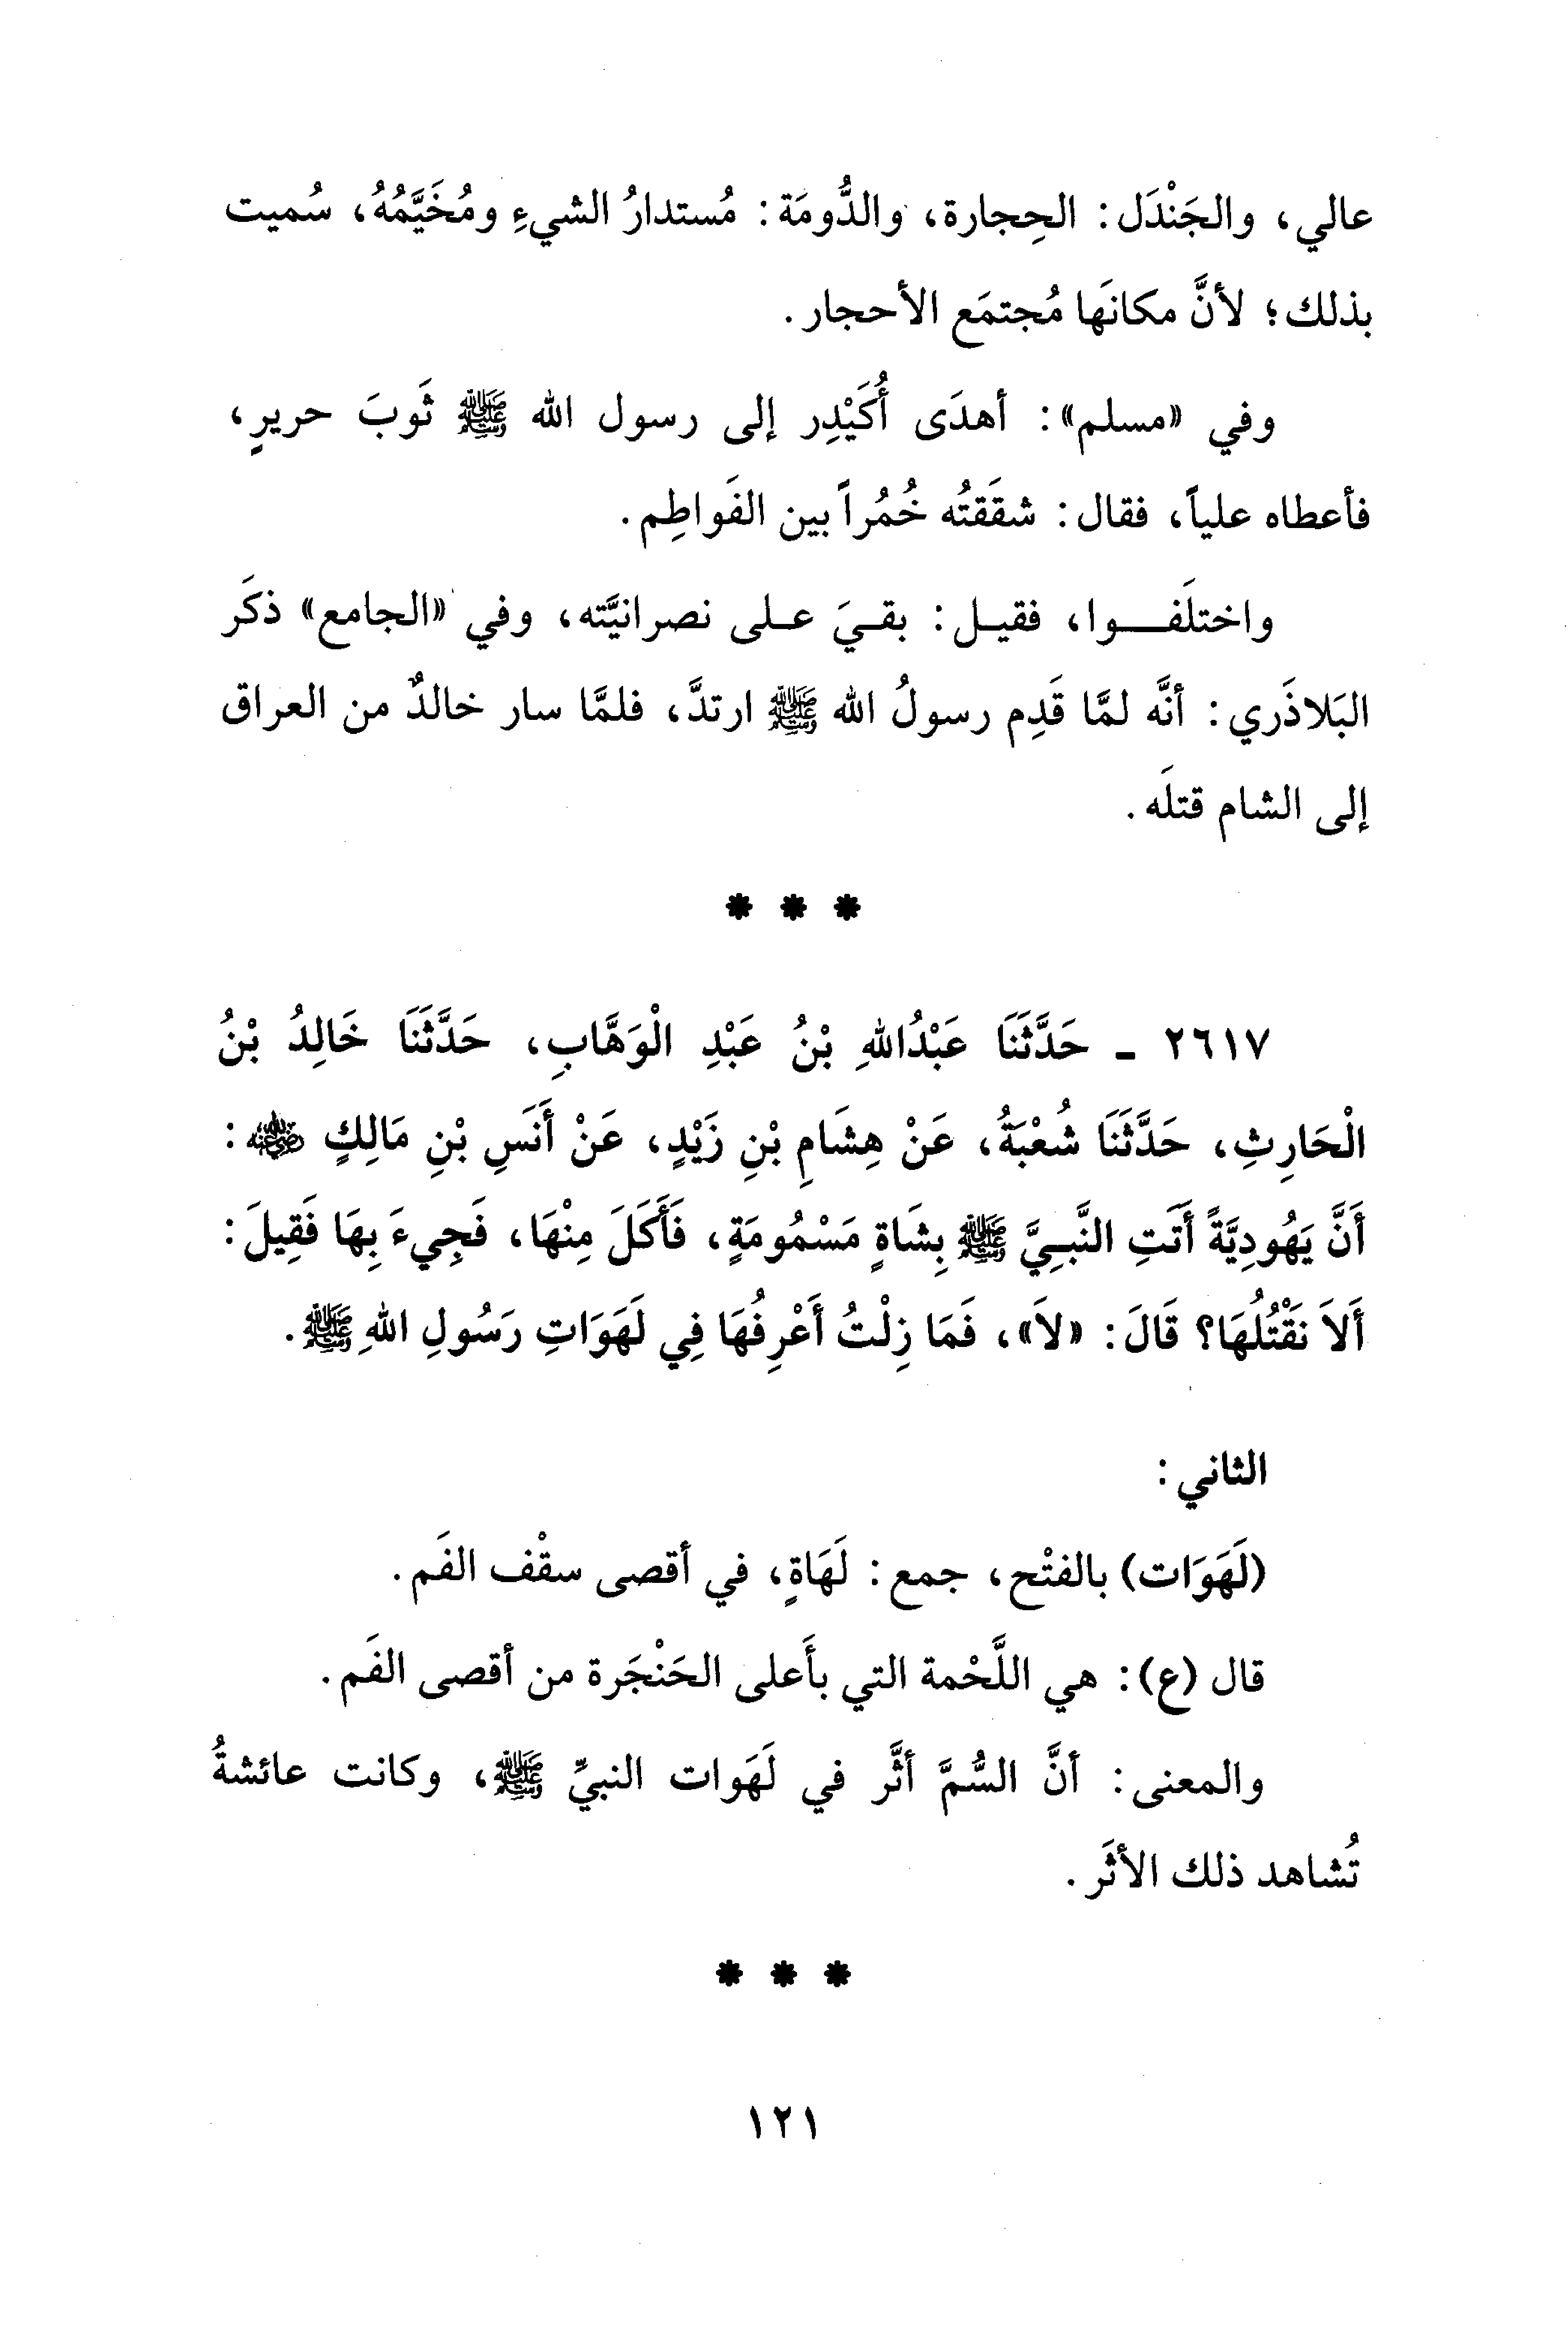 عالي، والجَنْدَل: الحِجارة، والدُّومَة: مُستدارُ الشيءِ ومُخَيَّمُهُ، سُميت
بذلك؛ لأنَّ مكانَها مُجتمَع الأحجار.
وفي «مسلم»: أهدَى أُكَيْدِر إلى رسول الله ﷺ ثَوبَ حريرٍ،
فأعطاه علياً، فقال: شقَقتُه خُمُراً بين الفَواطِم.
واختلَفـــوا، فقيـل: بقـيَ عـلى نصرانيَّته، وفي «الجامع» ذكَر
البَلاذَري: أنَّه لمَّا قَدِم رسولُ الله ﷺ ارتدَّ، فلمَّا سار خالدٌ من العراق
إلى الشام قتلَه.
* * *
٢٦١٧ - حَدَّثَنَا عَبْدُاللهِ بْنُ عَبْدِ الْوَهَّابِ، حَدَّثَنَا خَالِدُ بْنُ
الْحَارِثِ، حَدَّثَنَا شُعْبَةُ، عَنْ هِشَامِ بْنِ زَيْدٍ، عَنْ أَنَسِ بْنِ مَالِكٍ ﵁:
أَنَّ يَهُودِيَّةً أَتَتِ النَّبِيَّ ﷺ بِشَاةٍ مَسْمُومَةٍ، فَأَكَلَ مِنْهَا، فَجِيءَ بِهَا فَقِيلَ:
أَلاَ نَقْتُلُهَا؟ قَالَ: «لاَ»، فَمَا زِلْتُ أَعْرِفُهَا فِي لَهَوَاتِ رَسُولِ اللهِ ﷺ.
الثاني:
(لَهَوَات) بالفتْح، جمع: لَهَاةٍ، في أقصى سقْف الفَم.
قال (ع): هي اللَّحْمة التي بأَعلى الحَنْجَرة من أقصى الفَم.
والمعنى: أنَّ السُّمَّ أثَّر في لَهَوات النبيِّ ﷺ، وكانت عائشةُ
تُشاهد ذلك الأثَر.
* * *
١٢١